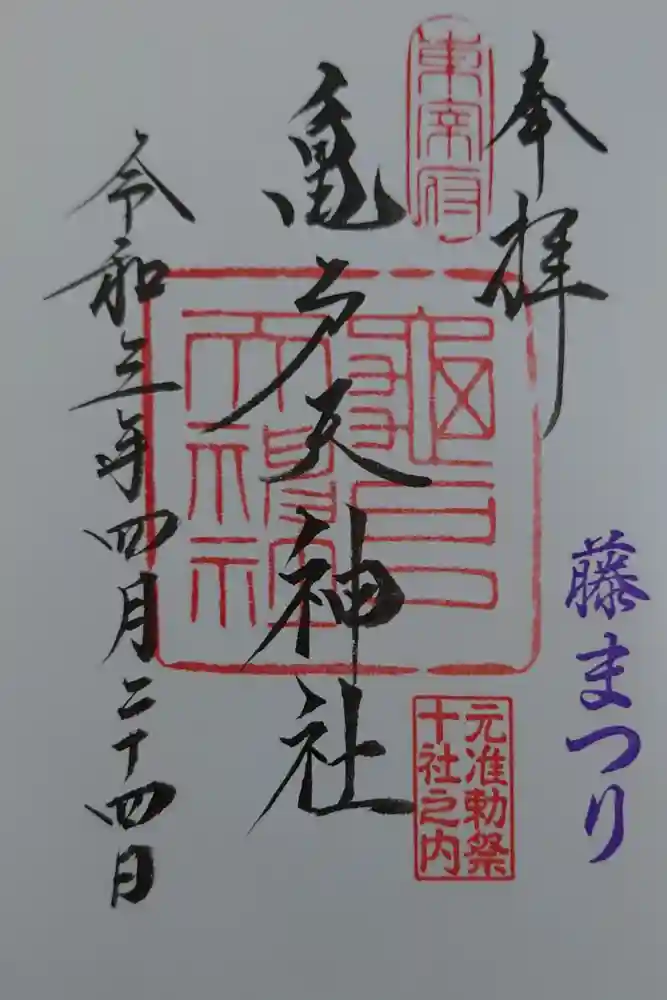 奉拝
藤まつり
東宰府
亀戸天神社
元准勅祭
十社之内
令和三年四月二十四日